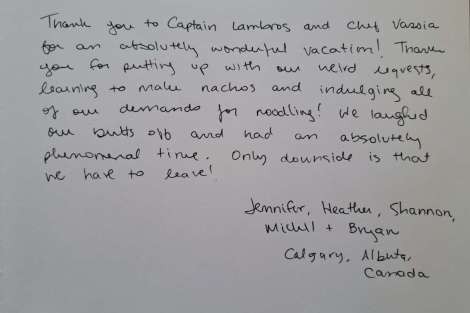 Thank you to Captain Lambros and chef Vassia
for an absolutely wonderful vacation! Thank
you for putting up with our weird requests,
learning to make nachos and indulging all
of our demands for noodling! We laughed
our butts off and had an absolutely
phenomenal time. Only downside is that
we have to leave!
Jennifer, Heather, Shannon,
+ Bryan
Calgary, Alberta,
Canada